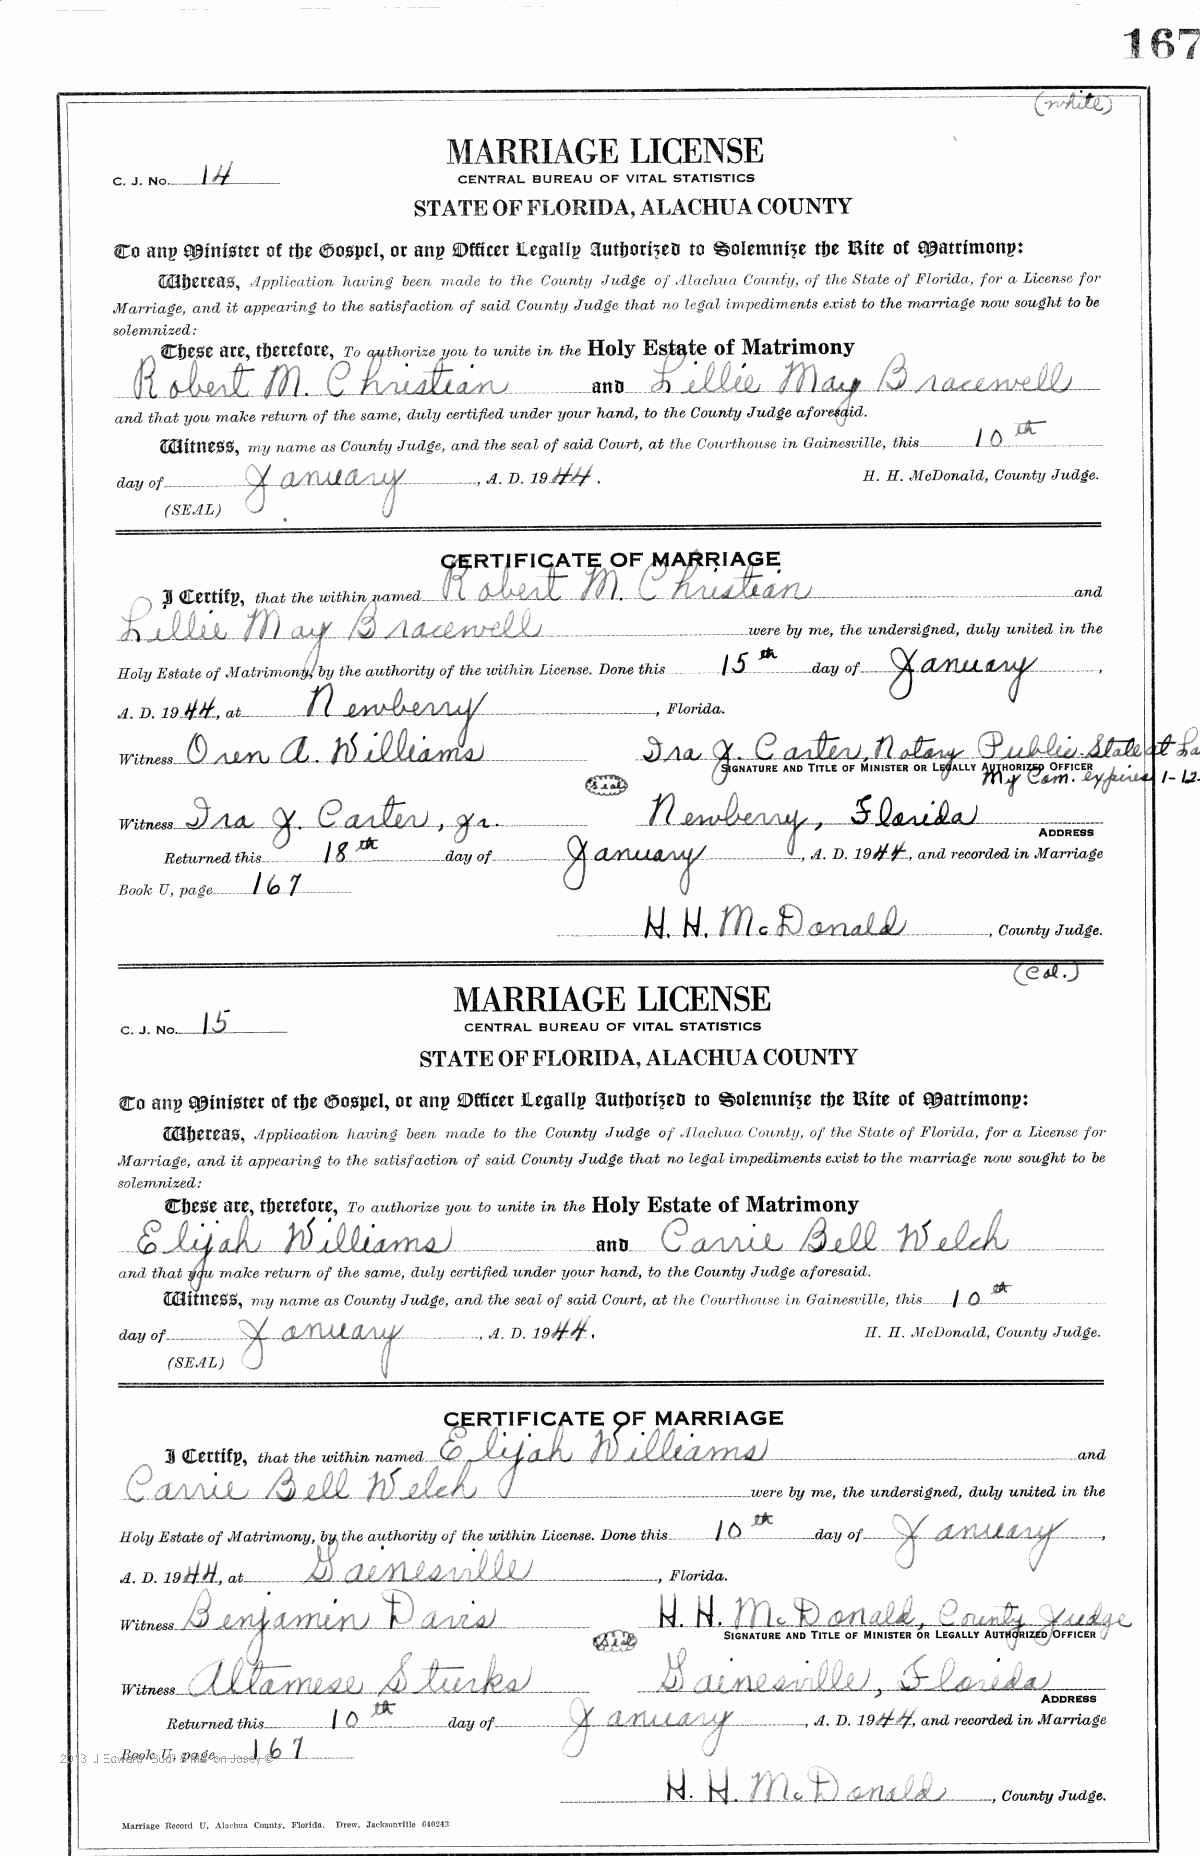 167
(white)
MARRIAGE LICENSE
C. J. No. 14
CENTRAL BUREAU OF VITAL STATISTICS
STATE OF FLORIDA, ALACHUA COUNTY
To any Minister of the Gospel, or any Officer Legally Authorized to Solemnize the Rite of Matrimony:
Whereas, Application having been made to the County Judge of Alachua County, of the State of Florida, for a License for
Marriage, and it appearing to the satisfaction of said County Judge that no legal impediments exist to the marriage now sought to be
solemnized:
These are, therefore, To authorize you to unite in the Holy Estate of Matrimony
Robert M. Christian and Lillie May Bracewell
and that you make return of the same, duly certified under your hand, to the County Judge aforesaid.
Witness, my name as County Judge, and the seal of said Court, at the Courthouse in Gainesville, this 10th
day of January, A. D. 1944. H. H. McDonald, County Judge.
(SEAL)
CERTIFICATE OF MARRIAGE
I Certify, that the within named Robert M. Christian and
Lillie May Bracewell were by me, the undersigned, duly united in the
Holy Estate of Matrimony, by the authority of the within License. Done this 15th day of January,
A. D. 1944, at Newberry, Florida.
Witness Oren A. Williams Ira J. Carter, Notary Public State at La
SIGNATURE AND TITLE OF MINISTER OR LEGALLY AUTHORIZED OFFICER
Seal My Com. expires 1-12-
Witness Ira J. Carter, Jr. Newberry, Florida
ADDRESS
Returned this 18th day of January, A. D. 1944, and recorded in Marriage
Book U, page 167
H. H. McDonald, County Judge.
(Col.)
MARRIAGE LICENSE
C. J. No. 15
CENTRAL BUREAU OF VITAL STATISTICS
STATE OF FLORIDA, ALACHUA COUNTY
To any Minister of the Gospel, or any Officer Legally Authorized to Solemnize the Rite of Matrimony:
Whereas, Application having been made to the County Judge of Alachua County, of the State of Florida, for a License for
Marriage, and it appearing to the satisfaction of said County Judge that no legal impediments exist to the marriage now sought to be
solemnized:
These are, therefore, To authorize you to unite in the Holy Estate of Matrimony
Elijah Williams and Carrie Bell Welch
and that you make return of the same, duly certified under your hand, to the County Judge aforesaid.
Witness, my name as County Judge, and the seal of said Court, at the Courthouse in Gainesville, this 10th
day of January, A. D. 1944. H. H. McDonald, County Judge.
(SEAL)
CERTIFICATE OF MARRIAGE
I Certify, that the within named Elijah Williams and
Carrie Bell Welch were by me, the undersigned, duly united in the
Holy Estate of Matrimony, by the authority of the within License. Done this 10th day of January,
A. D. 1944, at Gainesville, Florida.
Witness Benjamin Davis H. H. McDonald, County Judge
SIGNATURE AND TITLE OF MINISTER OR LEGALLY AUTHORIZED OFFICER
Seal
Witness Altamese Sturks Gainesville, Florida
ADDRESS
Returned this 10th day of January, A. D. 1944, and recorded in Marriage
Book U, page 167
2013 J Edward
H. H. McDonald, County Judge.
Marriage Record U, Alachua County, Florida. Drew, Jacksonville 640243